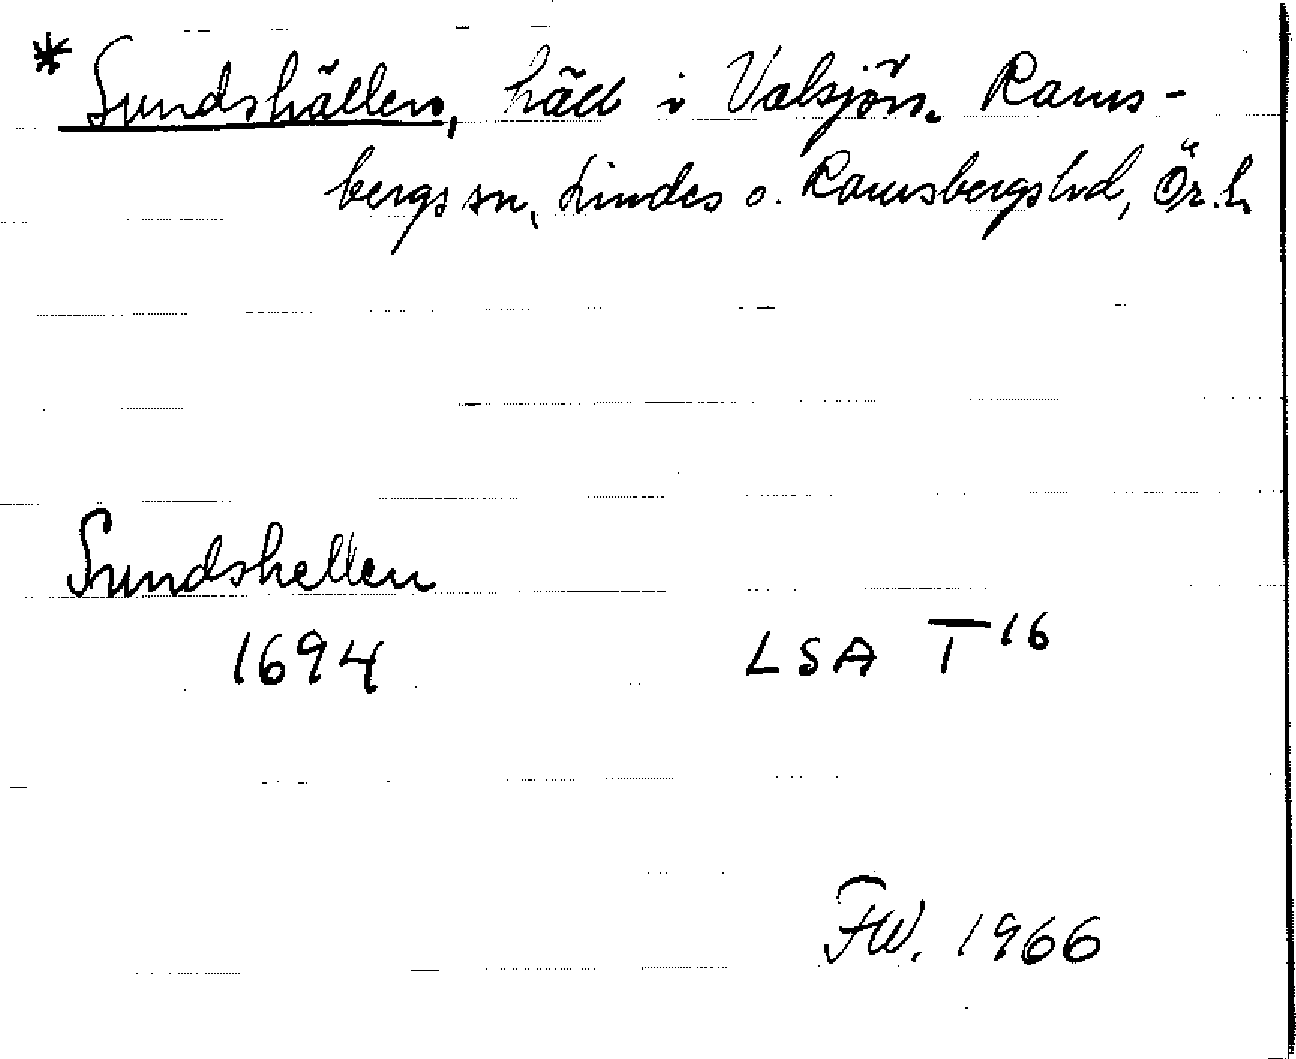 * Sundshällen, häll i Valsjön. Rams-
bergs sn, Lindes o. Ramsbergs hd, Ör. l.
Sundshellen
1694 LSA T 16
FW. 1966